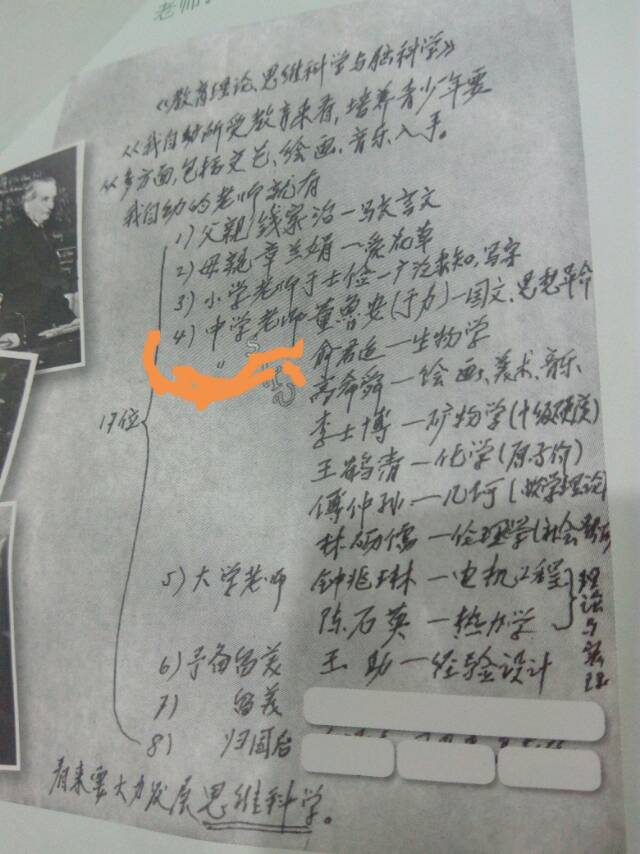 老师
《教育理论、思维科学与脑科学》
从我自幼所受教育来看，培养青少年要
从多方面，包括文艺、绘画、音乐入手。
我自幼的老师就有
1）父親 钱家治—写大言文
2）母親 章兰娟—爱花草
3）小学老师 于士俭—广泛求知，写字
4）中学老师 董鲁安（于力）—国文、思想革命
〃 俞君适—生物学
高希舜—绘画、美术、音乐
李士博—矿物学（十级硬度）
王鹤清—化学（原子价）
傅仲孙—几何（数学理论）
林砺儒—伦理学（社会
17位
5）大学老师 钟兆琳—电机工程
陈石英—热力学
理论与实理
6）予备留美 王助—经验设计
7）留美
8）归国后
看来要大力发展思维科学。